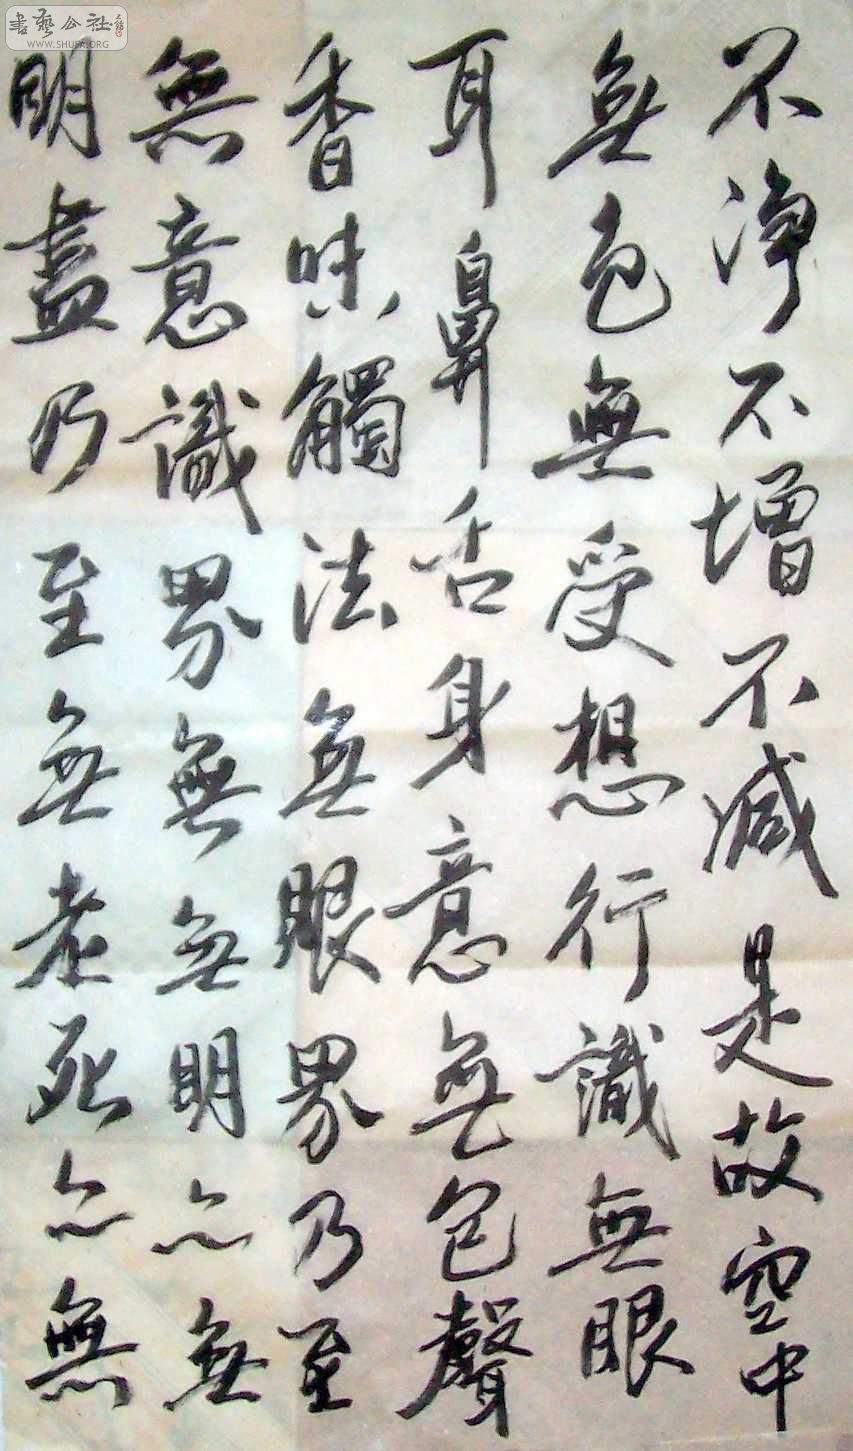 不淨不增不減是故空中
無色無受想行識無眼
耳鼻舌身意無色聲
香味觸法無眼界乃至
無意識界無無明亦無
明盡乃至無老死亦無
書藝公社
WWW.SHUFA.ORG